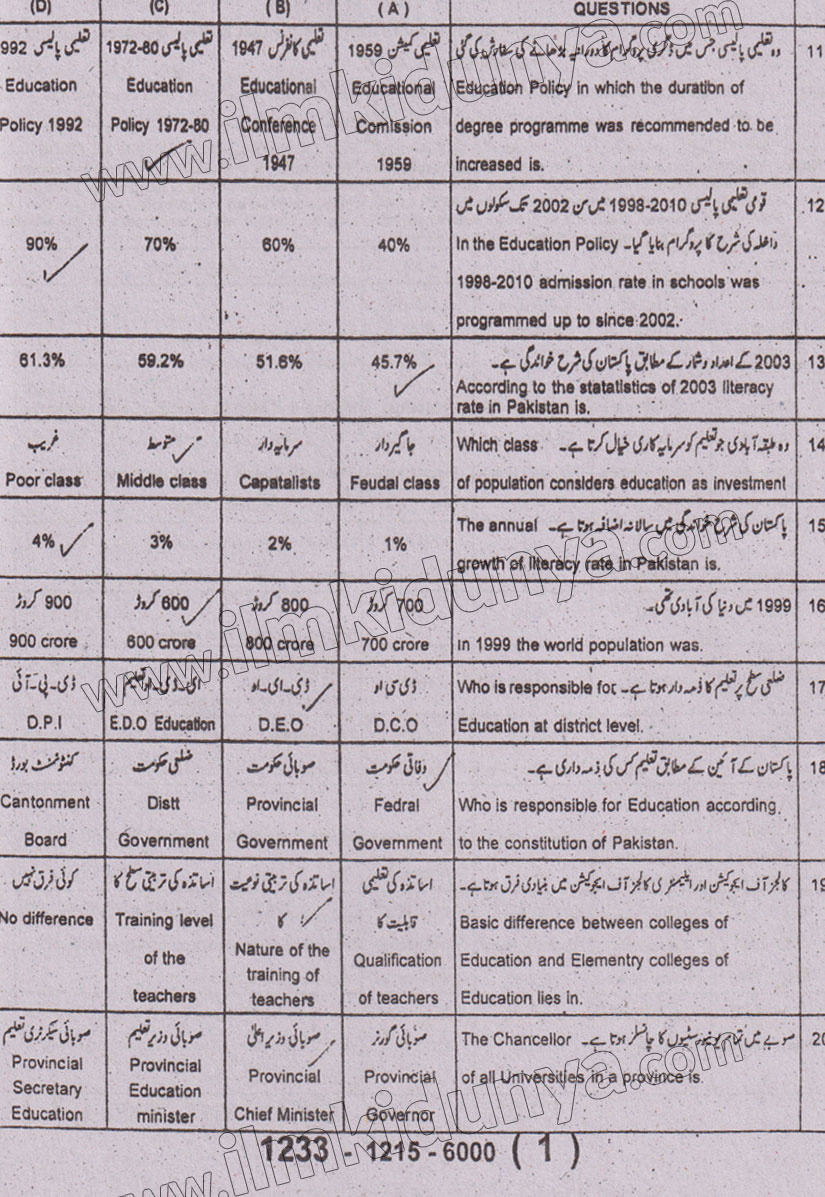 (D) (C) (B) (A) QUESTIONS
992 تعلیمی پالیسی
Education
Policy 1992
تعلیمی پالیسی 80-1972
Education
Policy 1972-80
تعلیمی کانفرنس 1947
Educational
Conference
1947
تعلیمی کمیشن 1959
Educational
Comission
1959
وہ تعلیمی پالیسی جس میں ڈگری پروگرام کا دورانیہ بڑھانے کی سفارش کی گئی
Education Policy in which the duration of
degree programme was recommended to be
increased is.
11
90%
70%
60%
40%
قومی تعلیمی پالیسی 2010-1998 میں سن 2002 تک سکولوں میں
داخلہ کی شرح کا پروگرام بنایا گیا۔ In the Education Policy
1998-2010 admission rate in schools was
programmed up to since 2002.
12
61.3%
59.2%
51.6%
45.7%
2003 کے اعداد و شمار کے مطابق پاکستان کی شرح خواندگی ہے۔
According to the statatistics of 2003 literacy
rate in Pakistan is.
13
غریب
Poor class
متوسط
Middle class
سرمایہ دار
Capatalists
جاگیردار
Feudal class
وہ طبقہ آبادی جو تعلیم کو سرمایہ کاری خیال کرتا ہے۔ Which class
of population considers education as investment
14
4%
3%
2%
1%
پاکستان کی شرح خواندگی میں سالانہ اضافہ ہوتا ہے۔ The annual
growth of literacy rate in Pakistan is.
15
900 کروڑ
900 crore
600 کروڑ
600 crore
800 کروڑ
800 crore
700 کروڑ
700 crore
1999 میں دنیا کی آبادی تھی۔
In 1999 the world population was.
16
ڈی۔پی۔آئی
D.P.I
ای۔ڈی۔او تعلیم
E.D.O Education
ڈی۔ای۔او
D.E.O
ڈی سی او
D.C.O
ضلعی سطح پر تعلیم کا ذمہ دار ہوتا ہے۔ Who is responsible for
Education at district level.
17
کنٹونمنٹ بورڈ
Cantonment
Board
ضلعی حکومت
Distt
Government
صوبائی حکومت
Provincial
Government
وفاقی حکومت
Fedral
Government
پاکستان کے آئین کے مطابق تعلیم کس کی ذمہ داری ہے۔
Who is responsible for Education according
to the constitution of Pakistan.
18
کوئی فرق نہیں
No difference
اساتذہ کی تربیتی سطح کا
Training level
of the
teachers
اساتذہ کی تربیتی نوعیت
کا
Nature of the
training of
teachers
اساتذہ کی تعلیمی
قابلیت کا
Qualification
of teachers
کالجز آف ایجوکیشن اور ایلیمنٹری کالجز آف ایجوکیشن میں بنیادی فرق ہوتا ہے۔
Basic difference between colleges of
Education and Elementry colleges of
Education lies in.
19
صوبائی سیکرٹری تعلیم
Provincial
Secretary
Education
صوبائی وزیر تعلیم
Provincial
Education
minister
صوبائی وزیر اعلیٰ
Provincial
Chief Minister
صوبائی گورنر
Provincial
Governor
صوبے میں تمام یونیورسٹیوں کا چانسلر ہوتا ہے۔ The Chancellor
of all Universities in a province is.
20
1233 - 1215 - 6000 ( 1 )
www.ilmkidunya.com
www.ilmkidunya.com
www.ilmkidunya.com